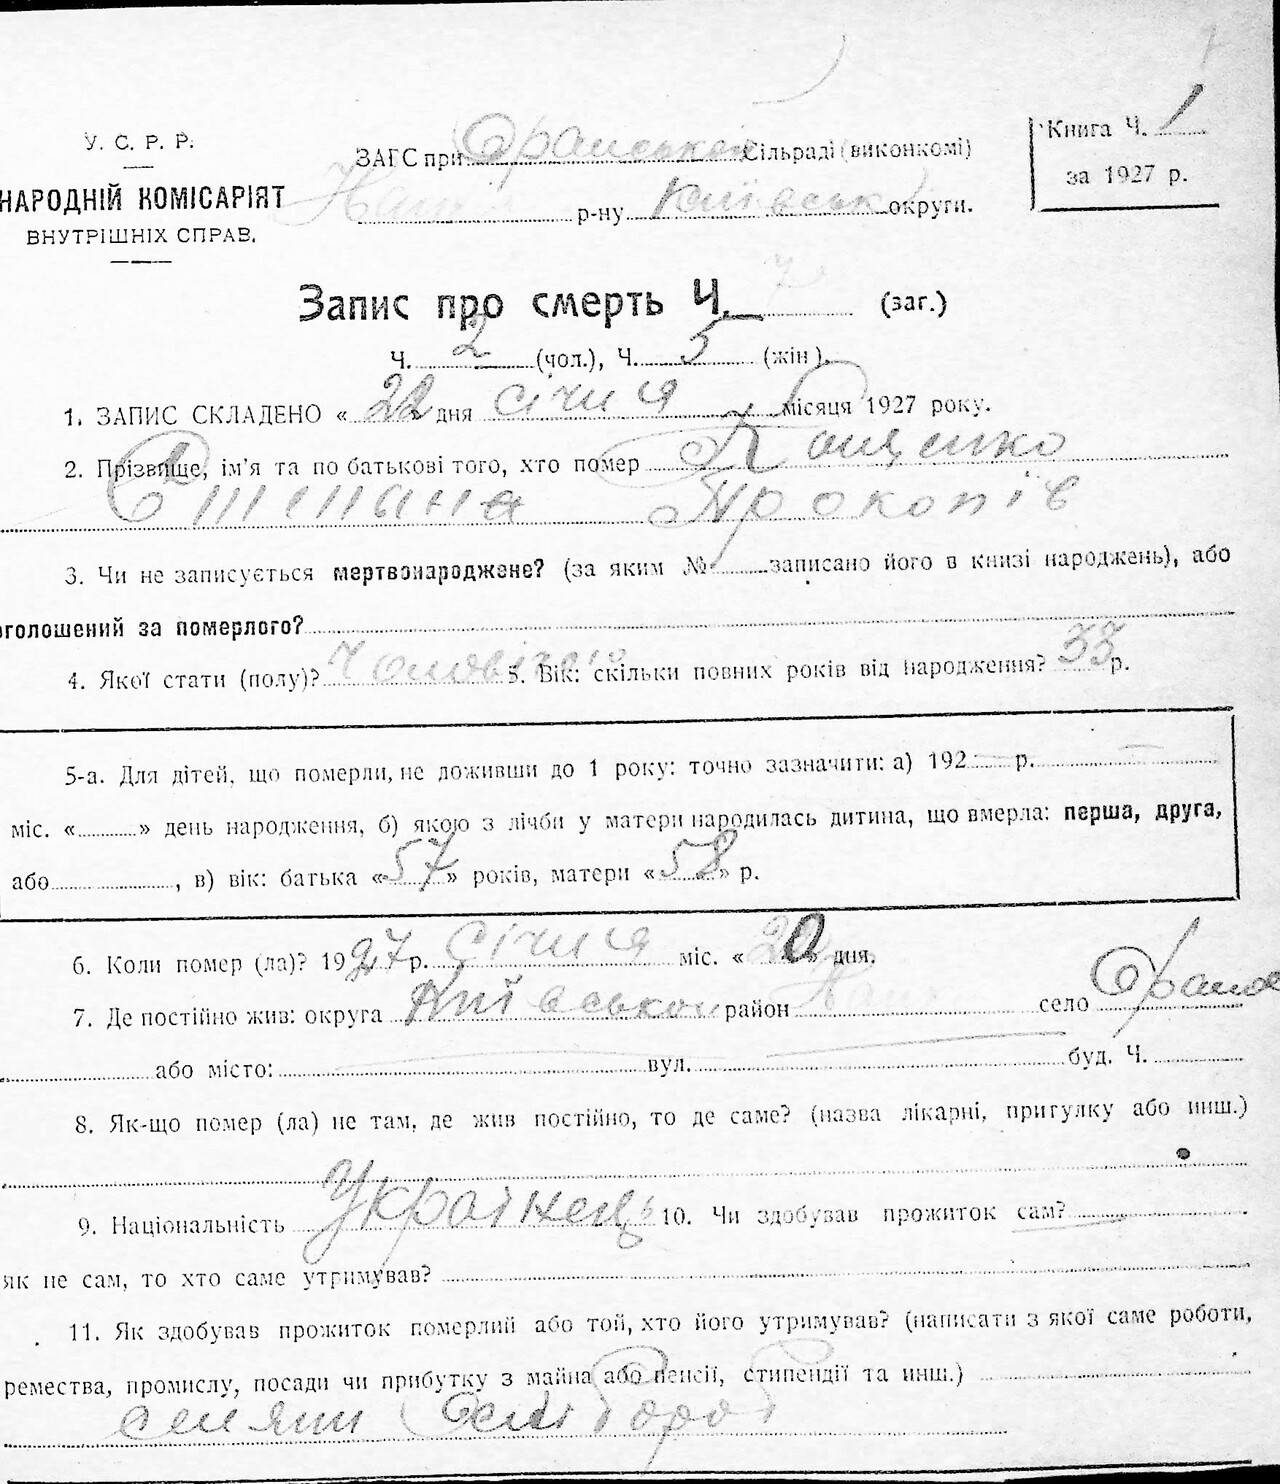 У. С. Р. Р.
НАРОДНІЙ КОМІСАРІЯТ
ВНУТРІШНІХ СПРАВ.
ЗАГС при Оранській Сільраді (виконкомі)
р-ну Київськ округи.
Книга Ч. 1
за 1927 р.
Запис про смерть Ч. 7 (заг.)
Ч. 2 (чол.), Ч. 5 (жін).
1. ЗАПИС СКЛАДЕНО « 22 дня січня місяця 1927 року.
2. Прізвище, ім'я та по батькові того, хто помер
Степана Прокопів
3. Чи не записується мертвонароджене? (за яким № записано його в книзі народжень), або
оголошений за померлого?
4. Якої стати (полу)? Чоловічої 5. Вік: скільки повних років від народження? 33 р.
5-а. Для дітей, що померли, не доживши до 1 року: точно зазначити: а) 192 р.
міс. « » день народження, б) якою з лічби у матери народилась дитина, що вмерла: перша, друга,
або , в) вік: батька «57» років, матери «58» р.
6. Коли помер (ла)? 1927 р. січня міс. «20» дня.
7. Де постійно жив: округа Київської район село Оране
або місто: вул. буд. Ч.
8. Як-що помер (ла) не там, де жив постійно, то де саме? (назва лікарні, притулку або инш.)
9. Національність Українець 10. Чи здобував прожиток сам?
як не сам, то хто саме утримував?
11. Як здобував прожиток померлий або той, хто його утримував? (написати з якої саме роботи,
ремества, промислу, посади чи прибутку з майна або пенсії, стипендії та инш.)